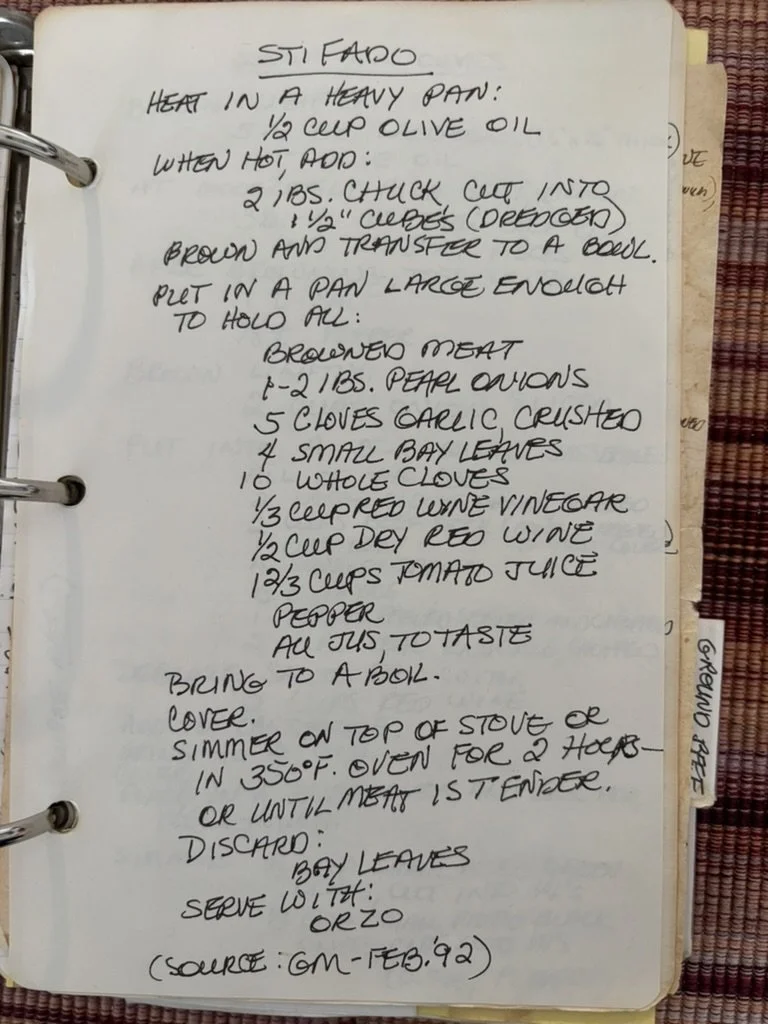 STIFADO
HEAT IN A HEAVY PAN:
1/2 CUP OLIVE OIL
WHEN HOT, ADD:
2 lBS. CHUCK, CUT INTO
1 1/2" CUBES (DREDGED)
BROWN AND TRANSFER TO A BOWL.
PUT IN A PAN LARGE ENOUGH
TO HOLD ALL:
BROWNED MEAT
1-2 lBS. PEARL ONIONS
5 CLOVES GARLIC, CRUSHED
4 SMALL BAY LEAVES
10 WHOLE CLOVES
1/3 CUP RED WINE VINEGAR
1/2 CUP DRY RED WINE
1 2/3 CUPS TOMATO JUICE
PEPPER
TO TASTE
BRING TO A BOIL.
COVER.
SIMMER ON TOP OF STOVE OR
IN 350°F. OVEN FOR 2 HOURS—
OR UNTIL MEAT IS TENDER.
DISCARD:
BAY LEAVES
SERVE WITH:
ORZO
(SOURCE: GM-FEB.'92)
GROUND BEEF